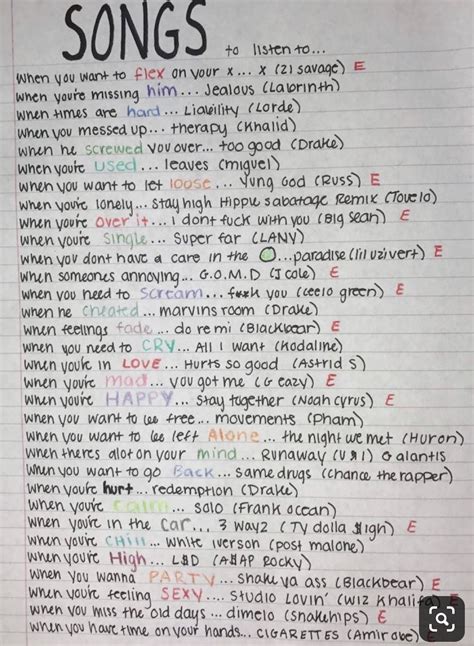 SONGS to listen to...
When you want to flex on your x... x (21 savage) E
When you're missing him... Jealous (Labrinth)
When times are hard... Liability (Lorde)
When you messed up... therapy (Khalid)
When he screwed you over... too good (Drake)
When you're used... leaves (miguel)
When you want to let loose... Yung God (Russ) E
When you're lonely... stay high Hippie sabatage Remix (Tove lo)
When you're over it... I dont fuck with you (Big Sean) E
When you're Single... Super far (LANY)
When you dont have a care in the ...paradise (lil uzi vert) E
When someones annoying... G.O.M.D (J cole) E
When you need to Scream... f**k you (ceelo green) E
When he cheated... marvins room (Drake)
When feelings fade... do re mi (Blackbear) E
When you need to CRY... All I want (Kodaline)
When you're in LOVE... Hurts so good (Astrid S)
When you're mad... you got me (G eazy) E
When you're HAPPY... Stay together (Noah cyrus) E
When you want to be free... movements (Pham)
When you want to be left Alone... the night we met (Huron)
When theres alot on your mind... Runaway (U & I) Galantis
When you want to go Back... same drugs (chance the rapper)
When you're hurt... redemption (Drake)
When you're calm... solo (Frank ocean)
When you're in the car... 3 wayz (Ty dolla $igh) E
When you're CHill... White iverson (post malone)
When you're High... L$D (A$AP Rocky)
When you wanna PARTY... shake ya ass (Blackbear) E
When you're feeling SEXY... Studio Lovin' (Wiz Khalifa) E
When you miss the old days... dimelo (snakehips) E
When you have time on your hands... CIGARETTES (Amir obe) E